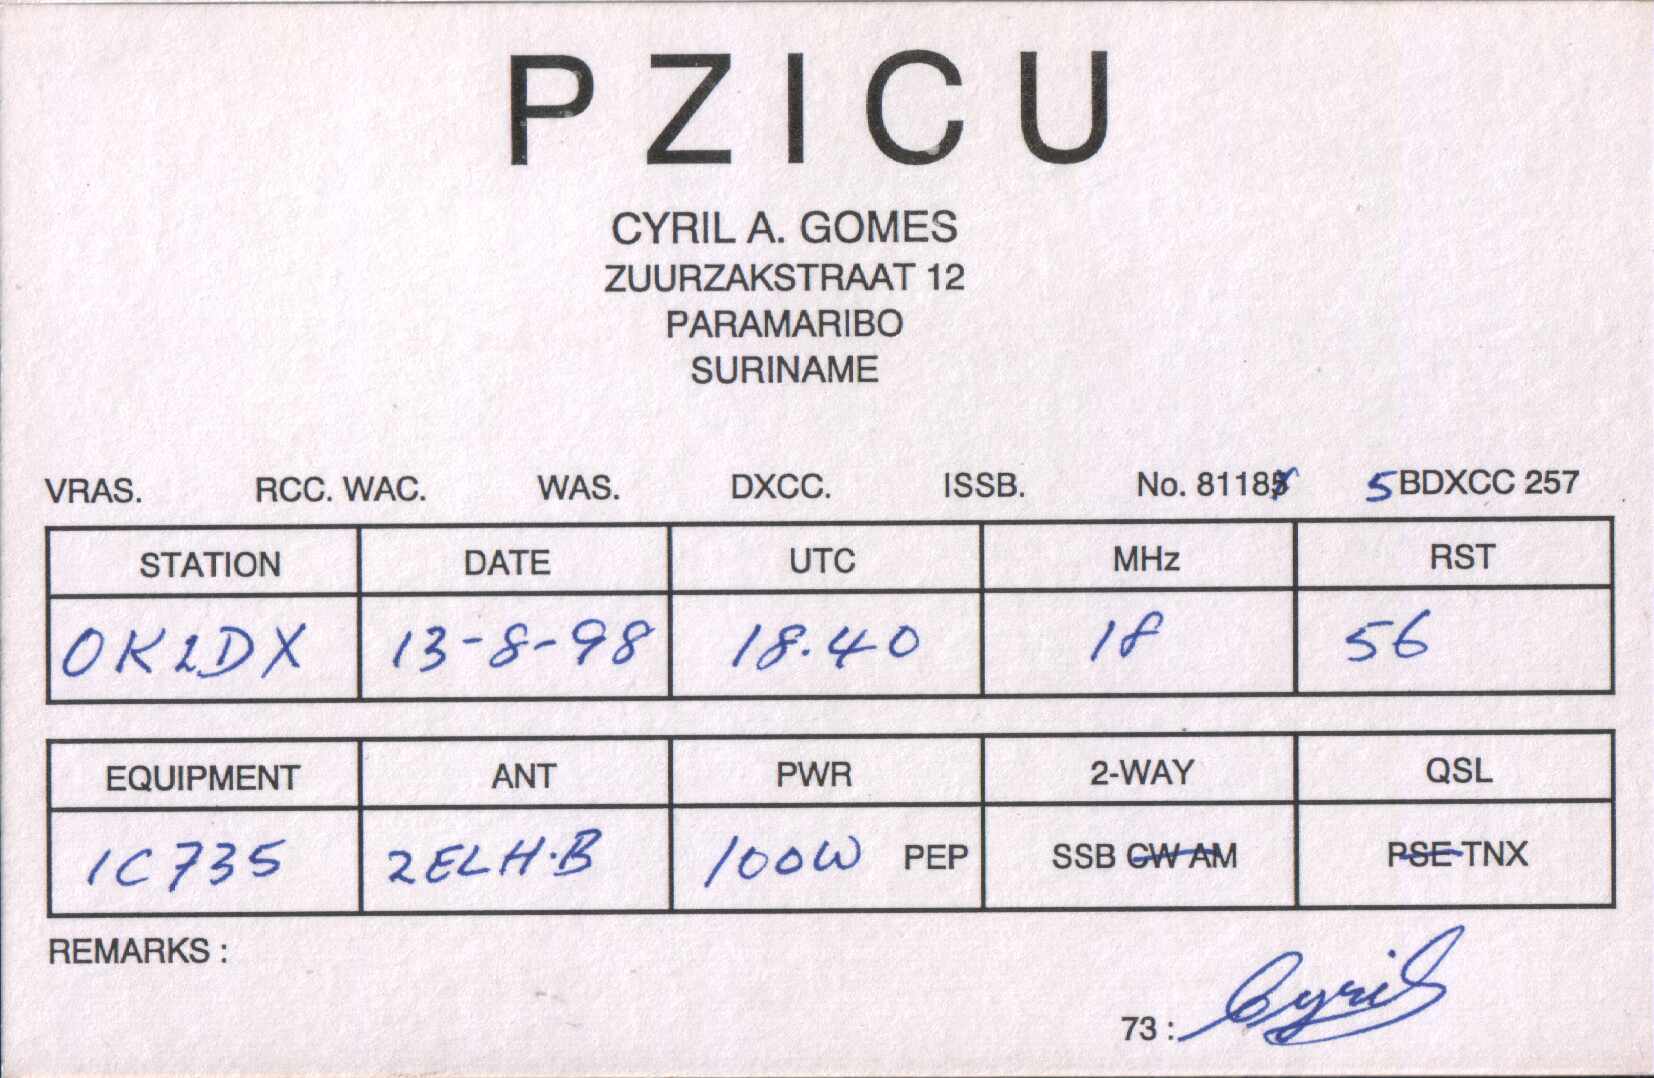 PZICU
CYRIL A. GOMES
ZUURZAKSTRAAT 12
PARAMARIBO
SURINAME
VRAS. RCC. WAC. WAS. DXCC. ISSB. No. 8118 5BDXCC 257
STATION DATE UTC MHz RST
OK2DX 13-8-98 18.40 18 56
EQUIPMENT ANT PWR 2-WAY QSL
IC735 2ELH.B 100W PEP SSB CW AM PSE TNX
REMARKS :
73 : Cyril